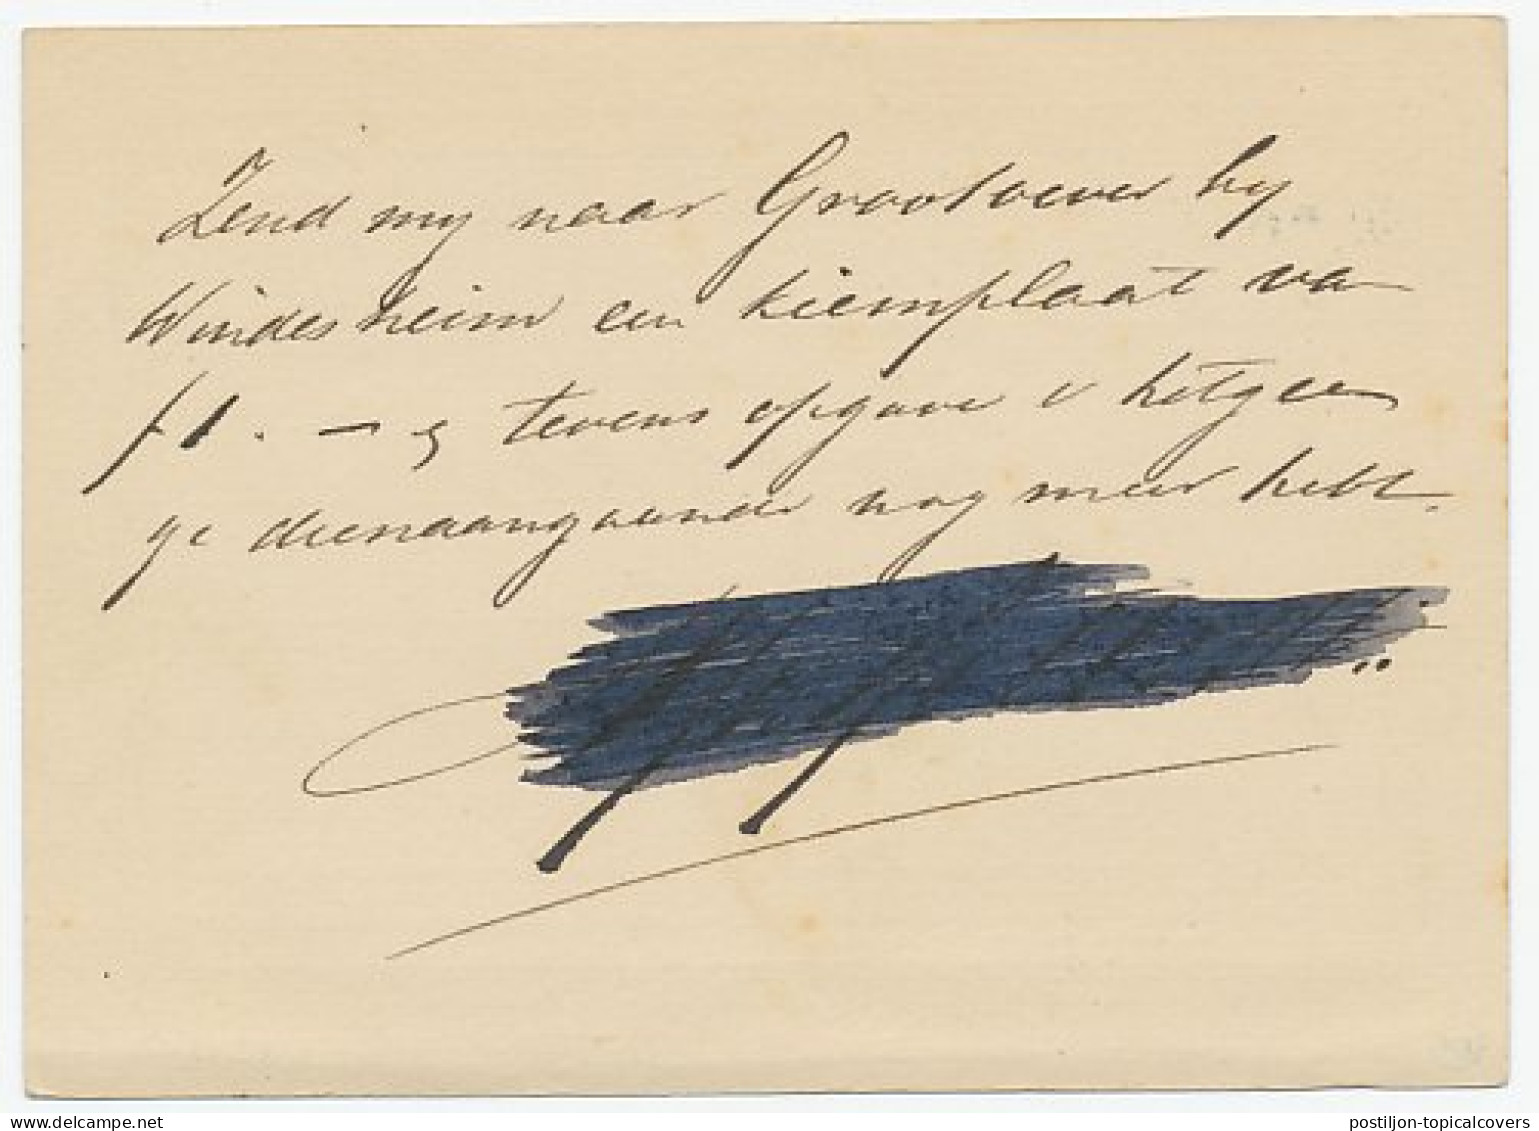 Zend my naar Grootoever by
Windesheim een kiemplaat van
f 1. — & tevens opgave v hetgeen
ge dienaangaande nog meer hebt.
postiljon-topicalcovers